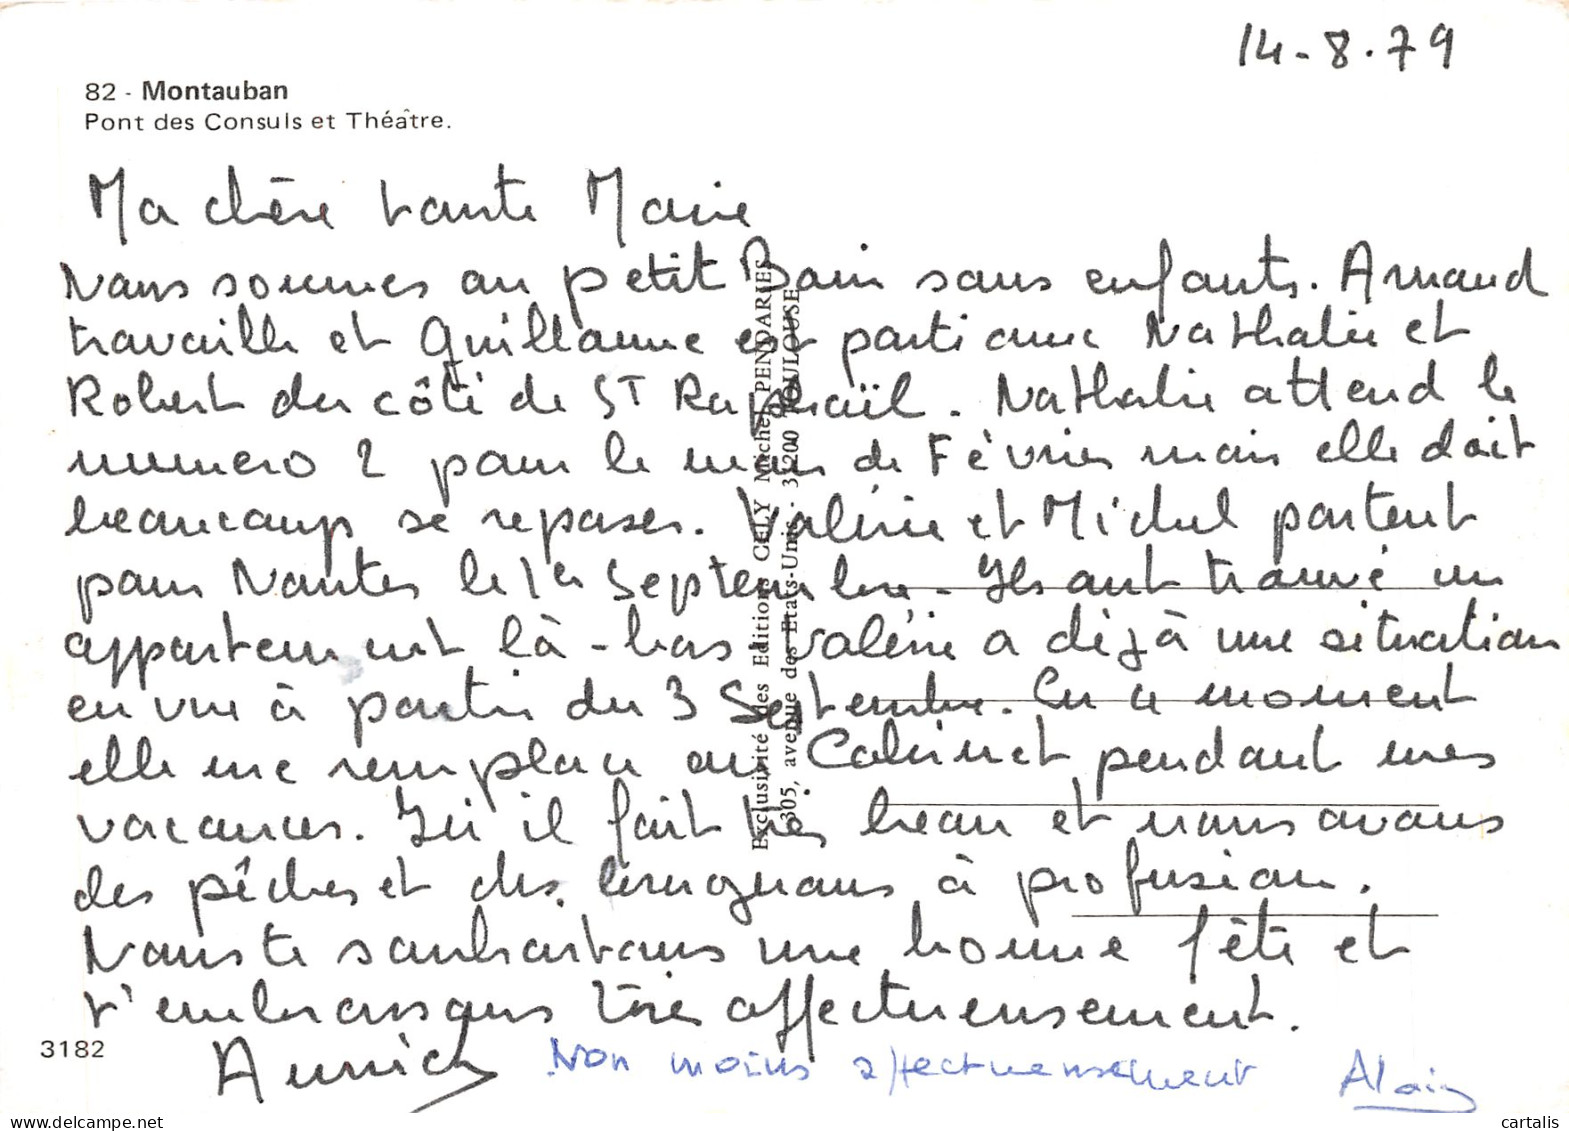 14-8-79
82 - Montauban
Pont des Consuls et Théâtre.
Ma chère tante Marie
Nous sommes au petit Bain sans enfants. Arnaud
travaille et Guillaume est parti avec Nathalie et
Robert du côté de ST Raphaël. Nathalie attend le
numero 2 pour le mois de Février mais elle doit
beaucoup se reposer. Valérie et Michel partent
pour Nantes le 1er Septembre. Ils ont trouvé un
appartement là-bas Valérie a déjà une situation
en vue à partir du 3 Septembre. En ce moment
elle me remplace au Cabinet pendant mes
vacances. Ici il fait très beau et nous avons
des pêches et des brugnons à profusion.
Nous te souhaitons une bonne fête et
t'embrassons très affectueusement.
Annick
Non moins affectueusement Alain
3182
Exclusivité des Editions CELY Michel PENDARIES
305, avenue des Etats-Unis - 31200 TOULOUSE
cartalis